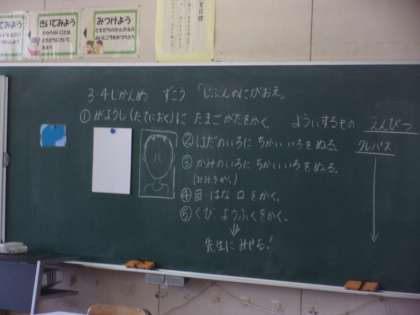 きいてみよう
みつけよう
3.4じかんめ ずこう 「じぶんのにがおえ」
①がようし(たてにおく)に たまごがたをかく。
よういするもの えんぴつ
クレパス
②はだのいろに ちかいいろをぬる。
③かみのいろに ちかいいろをぬる。
④目 はな 口をかく。
⑤くび ようふくをかく。
先生に みせる!